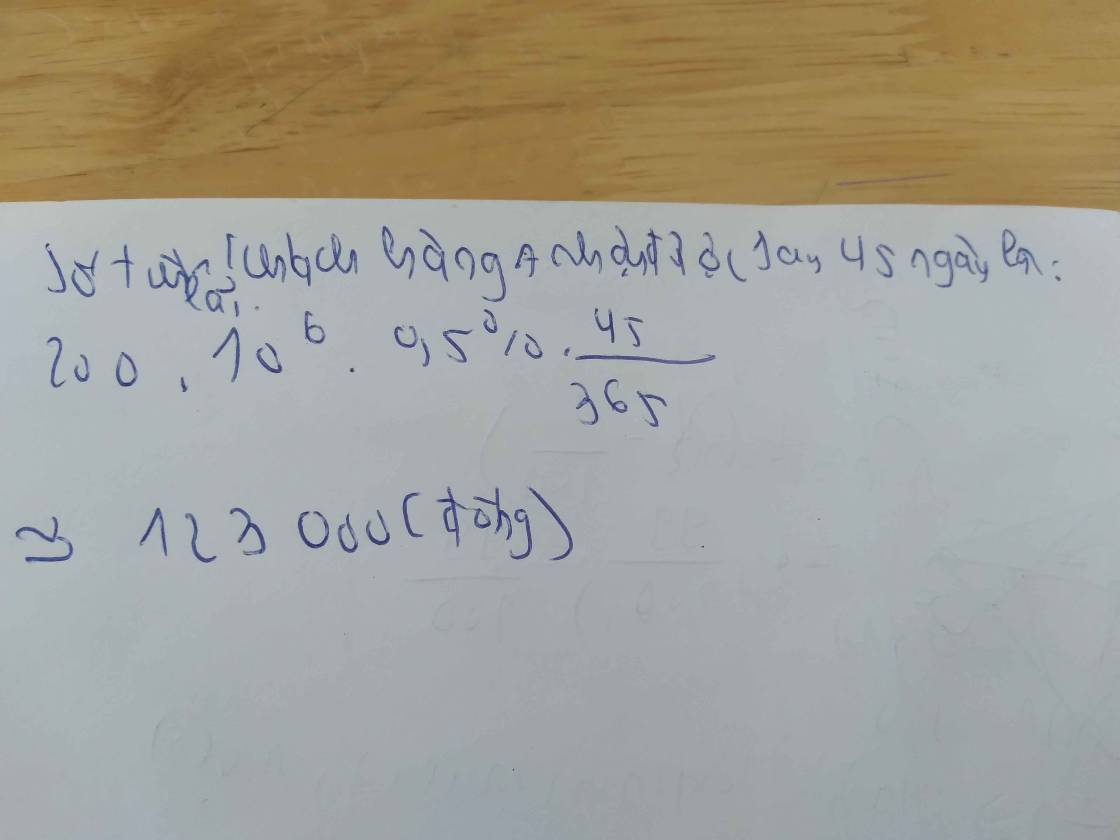 Số tiền lãi khách hàng A nhận được sau 45 ngày là:
200 . 10⁶ . 0,5% . 45/365
≃ 123 000 (đồng)